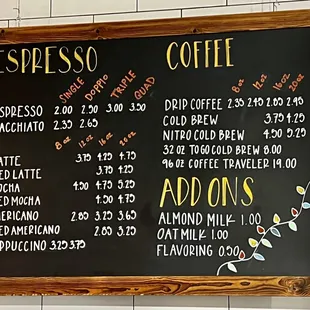 ESPRESSO
SINGLE DOPPIO TRIPLE QUAD
ESPRESSO 2.00 2.50 3.00 3.50
ACCHIATO 2.35 2.65
8 oz 12 oz 16 oz 20 oz
ATTE 3.75 4.25 4.75
ED LATTE 3.75 4.25
OCHA 4.50 4.75 5.25
ED MOCHA 4.50 4.75
ERICANO 2.80 3.25 3.65
ED AMERICANO 2.80 3.25
PPUCCINO 3.25 3.75
COFFEE
8 oz 12 oz 16 oz 20 oz
DRIP COFFEE 2.35 2.40 2.85 2.95
COLD BREW 3.75 4.25
NITRO COLD BREW 4.50 5.25
32 OZ TOGO COLD BREW 8.00
96 OZ COFFEE TRAVELER 19.00
ADD ONS
ALMOND MILK 1.00
OAT MILK 1.00
FLAVORING 0.50